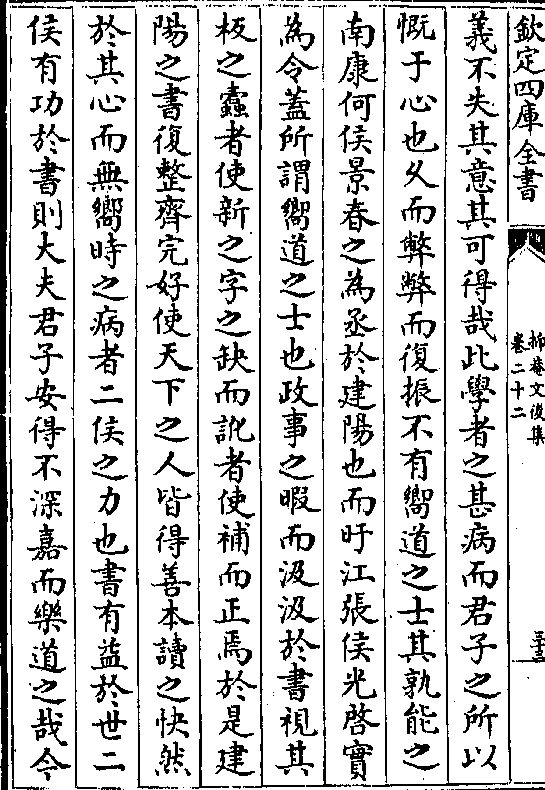 欽定四庫全書
抑菴文後集
卷二十二
三十三
義不失其意其可得哉此學者之甚病而君子之所以
慨于心也乆而弊弊而復振不有嚮道之士其孰能之
南康何侯景春之為丞於建陽也而盱江張侯光啓實
為令蓋所謂嚮道之士也政事之暇而汲汲於書視其
板之蠧者使新之字之缺而訛者使補而正焉於是建
陽之書復整齊完好使天下之人皆得善本讀之快然
於其心而無嚮時之病者二侯之力也書有益於世二
侯有功於書則大夫君子安得不深嘉而樂道之哉今